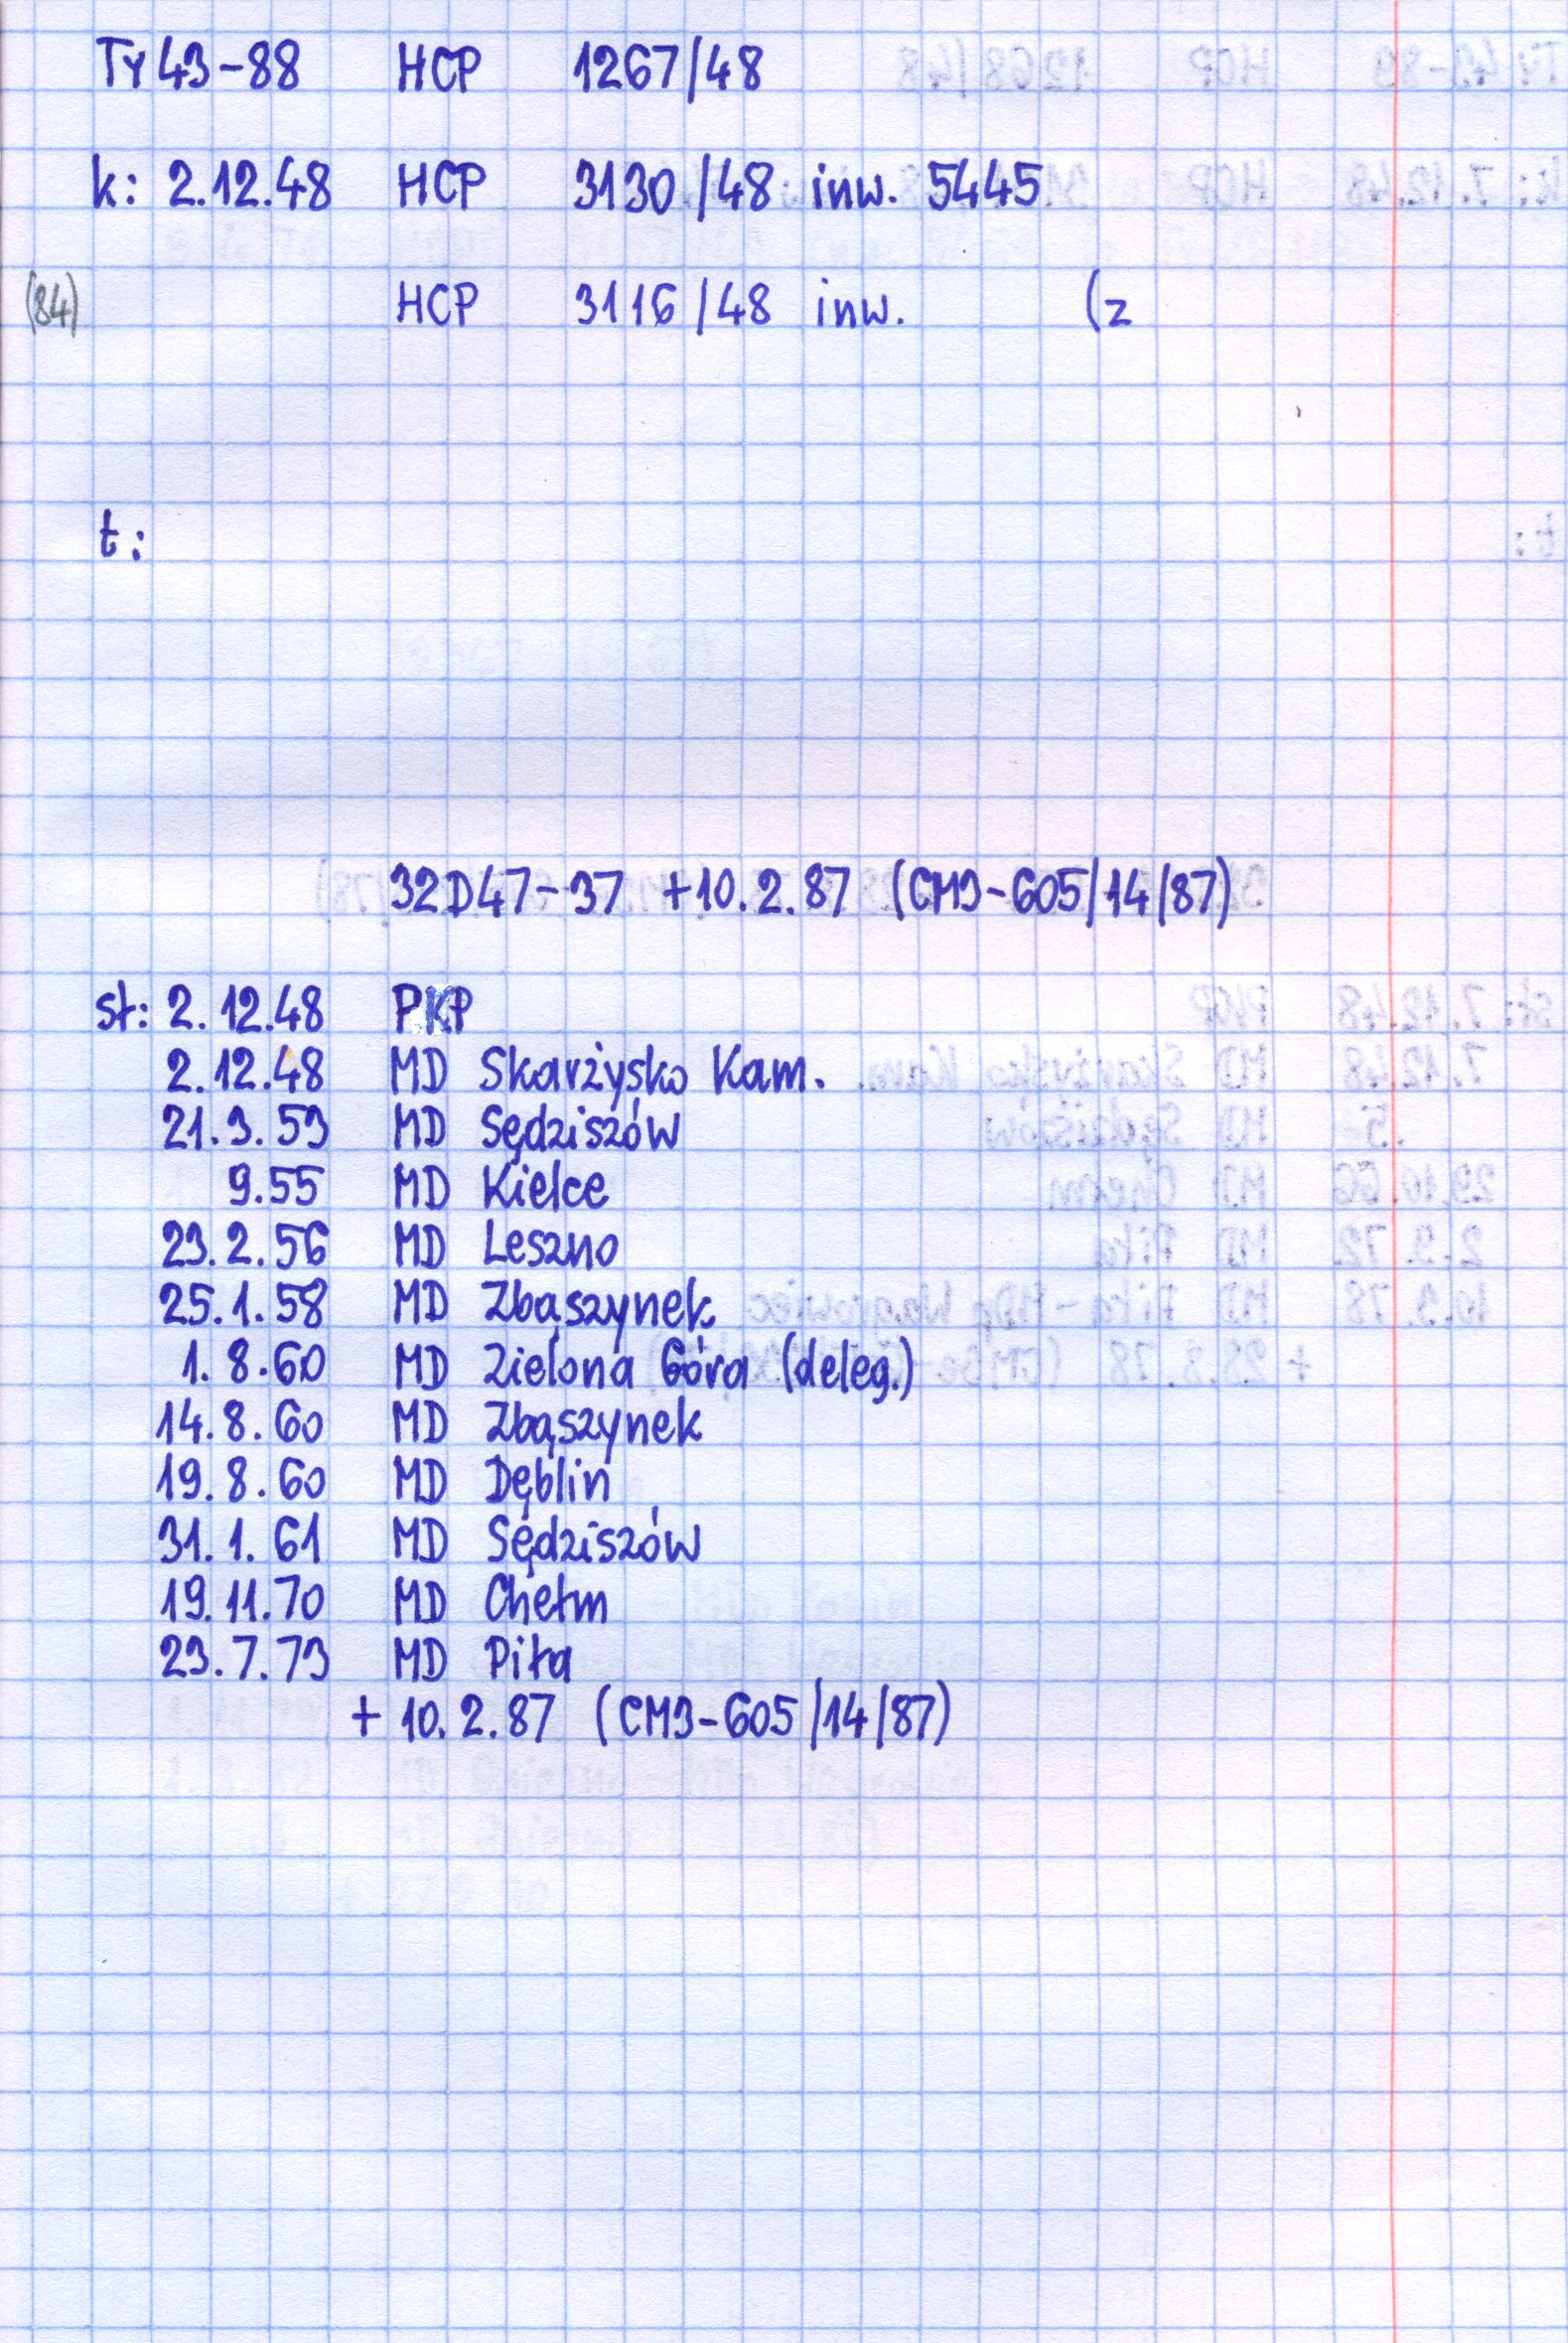 Ty43-88 HCP 1267/48
k: 2.12.48 HCP 3130/48 inw. 5445
(84) HCP 3116/48 inw. (z
t:
32D47-37 +10.2.87 (CM3-605/14/87)
st: 2.12.48 PKP
2.12.48 MD Skarżysko Kam.
21.3.53 MD Sędziszów
9.55 MD Kielce
23.2.56 MD Leszno
25.1.58 MD Zbąszynek
1.8.60 MD Zielona Góra (deleg.)
14.8.60 MD Zbąszynek
19.8.60 MD Dęblin
31.1.61 MD Sędziszów
19.11.70 MD Chełm
23.7.73 MD Piła
+ 10.2.87 (CM3-605/14/87)